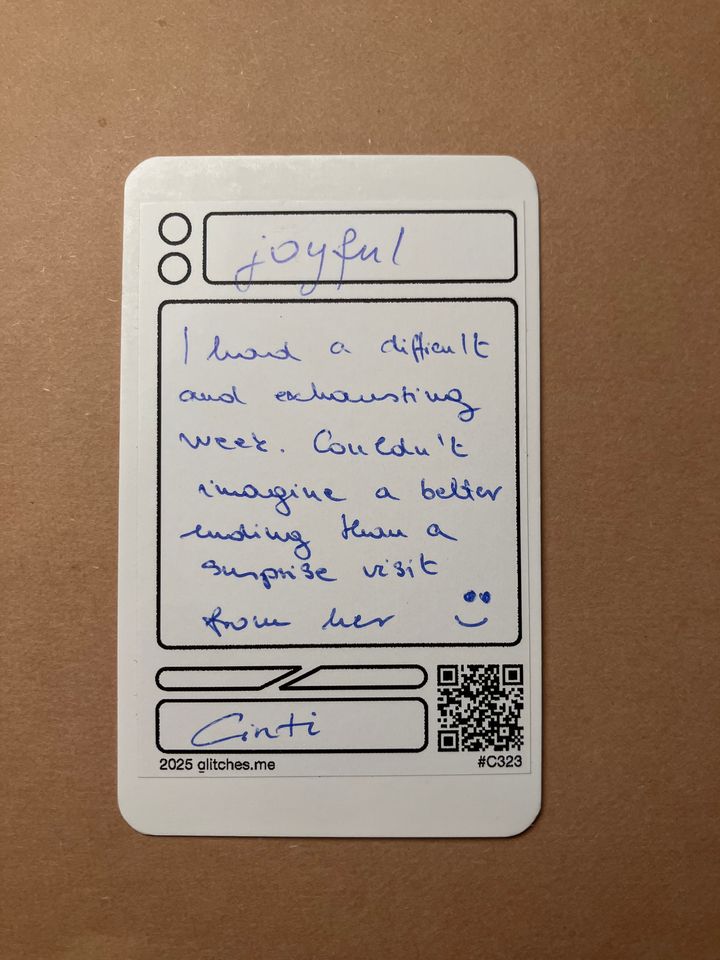 joyful
I had a difficult
and exhausting
week. Couldn't
imagine a better
ending than a
surprise visit
from her
Cinti
2025 glitches.me
#C323